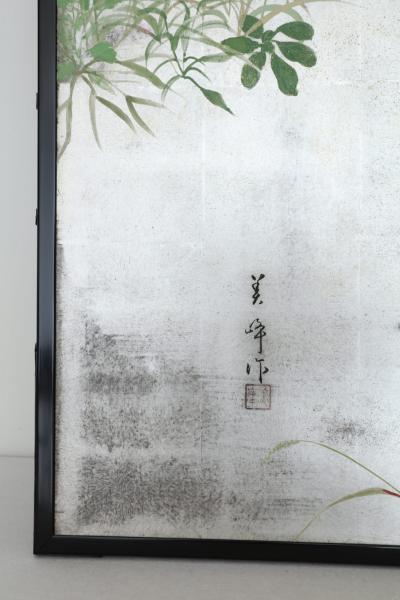 美峰作